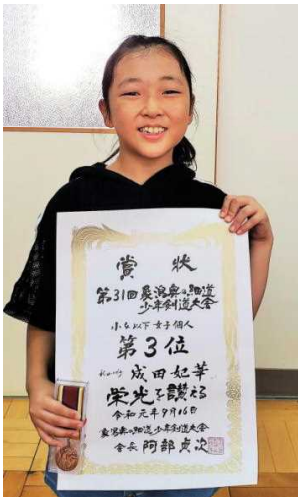 賞状
第31回象潟奥の細道
少年剣道大会
小6以下女子個人
第3位
成田妃華
栄光を讃える
令和元年9月16日
象潟奥の細道少年剣道大会
会長 阿部貞次